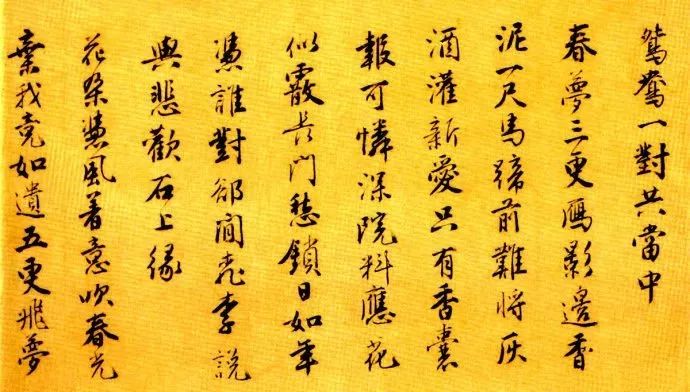 鴛鴦一對共當中
春夢三更鴈影邊香
泥一尺馬蹄前難將灰
酒灌新愛只有香囊
報可憐深院料應花
似霰長門愁鎖日如年
憑誰對卻閒桃李說
與悲歡石上緣
花朶憑風著意吹春光
棄我竟如遺五更飛夢